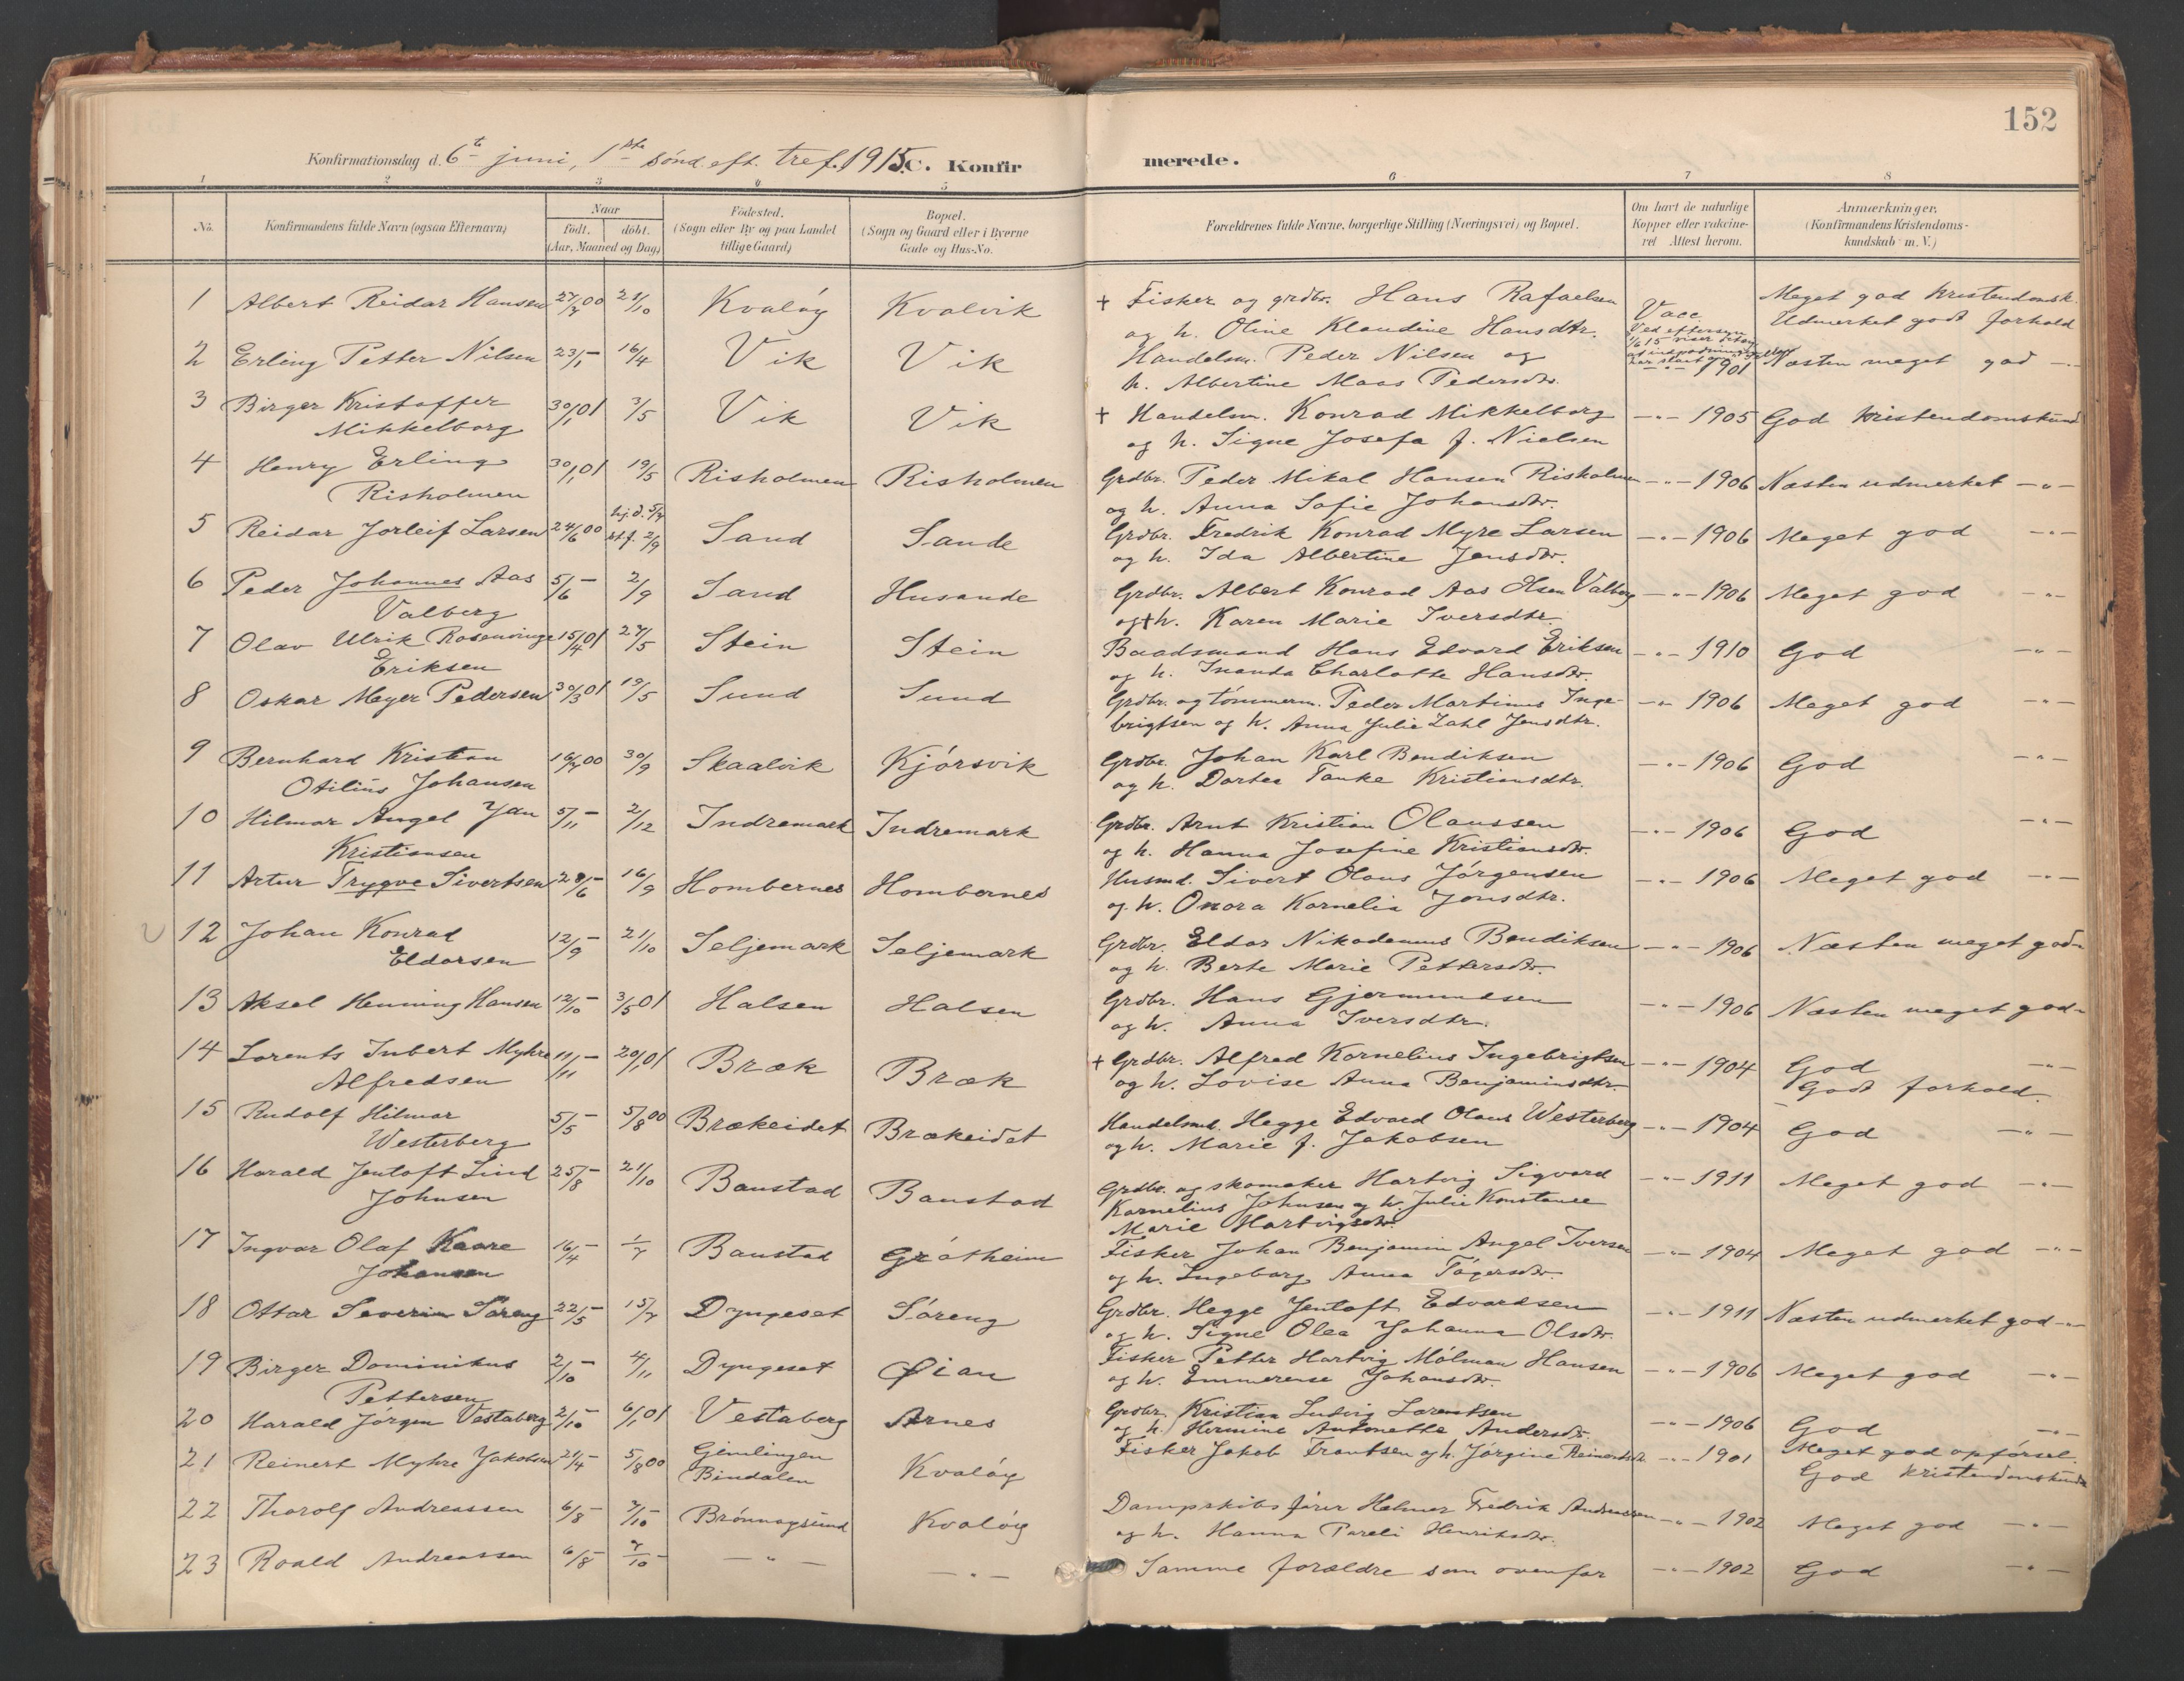 152
Konfirmationsdag d. 6te juni, 1ste sönd. eft. tref. 1915. C. Konfir merede.
1 2 3 4 5 6 7 8
No. Konfirmandens fulde Navn (ogsaa Efternavn) Naar födt. döbt. (Aar, Maaned og Dag) Födested. (Sogn eller By og paa Landet tillige Gaard) Bopæl. (Sogn og Gaard eller i Byerne Gade og Hus-No. Forældrenes fulde Navne, borgerlige Stilling (Næringsvei) og Bopæl. Om havt de naturlige Kopper eller vakcineret Attest herom. Anmærkninger. (Konfirmandens Kristendomskundskab m. V.)
1 Albert Reidar Hansen 27/7 00 21/10 Kvalöy Kvalvik + Fisker og grdbr. Hans Rafaelsen Vacc. Meget god kristendomsk.
og h. Oline Klaudine Hansdtr. Ved eftersyn Udmerket godt forhold
2 Erling Petter Nilsen 23/1 – 16/4 Vik Vik Handelsm. Peder Nilsen og 1901 Næsten meget god –"–
h. Albertine Maas Pedersdtr.
3 Birger Kristoffer 30/1 01 3/5 Vik Vik + Handelsm. Konrad Mikkelborg –"– 1905 God kristendomskund
Mikkelborg og h. Signe Josefa f. Nielsen
4 Henry Erling 30/1 01 19/5 Risholmen Risholmen Grdbr. Peder Mikal Hansen Risholmen –"– 1906 Næsten udmerket –"–
Risholmen og h. Anna Sofie Johansdtr.
5 Reidar Jorleif Larsen 24/6 00 hj. d. 5/7 st.f. 2/9 Sand Sande Grdbr. Fredrik Konrad Myre Larsen –"– 1906 Meget god –"–
og h. Ida Albertine Jensdtr.
6 Peder Johannes Aas 5/6 – 2/9 Sand Husande Grdbr. Albert Konrad Aas Olsen Valberg –"– 1906 Meget god –"–
Valberg og + h. Karen Marie Iversdtr.
7 Olav Ulrik Rosenvinge 15/4 01 27/5 Stein Stein Baadsmand Hans Edvard Eriksen –"– 1910 God –"–
Eriksen og h. Inanda Charlotte Hansdtr.
8 Oskar Meyer Pedersen 30/3 01 19/5 Sund Sund Grdbr. og tömmerm. Peder Martinus Inge- –"– 1906 Meget god –"–
brigtsen og h. Anna Julie Zahl Jensdtr.
9 Bernhard Kristian 16/7 00 30/9 Skaalvik Kjörsvik Grdbr. Johan Karl Bendiksen –"– 1906 God –"–
Otilius Johansen og h. Dortea Tanke Kristiansdtr.
10 Hilmar Angel Jan 5/11 – 2/12 Indremark Indremark Grdbr. Arnt Kristian Olaussen –"– 1906 God –"–
Kristiansen og h. Hanna Josefine Kristiansdtr.
11 Artur Trygve Sivertsen 28/6 – 16/9 Hombernes Hombernes Husmd. Sivert Olaus Jörgensen –"– 1906 Meget god –"–
og h. Onora Kornelia Jonsdtr.
12 Johan Konrad 12/9 – 21/10 Seljemark Seljemark Grdbr. Eldor Nikodemus Bendiksen –"– 1906 Næsten meget god –"
Eldorsen og h. Berte Marie Pettersdtr.
13 Aksel Henning Hansen 12/10 – 3/5 01 Halsen Halsen Grdbr. Hans Gjermundsen –"– 1906 Næsten meget god –"
og h. Anna Iversdtr.
14 Lorents Inbert Myhre 11/11 – 20/1 01 Bræk Bræk + Grdbr. Alfred Kornelius Ingebrigtsen –"– 1904 God –"–
Alfredsen og h. Lovise Anna Benjaminsdtr. Godt forhold.
15 Rudolf Hilmar 5/5 – 5/8 00 Brækeidet Brækeidet Handelsmd. Hegge Edvard Olaus Westerberg –"– 1904 God –"–
Westerberg og h. Marie f. Jakobsen
16 Harald Jentoft Lind 25/8 – 21/10 Baustad Baustad Grdbr. og skomaker Hartvig Sigvard –"– 1911 Meget god –"–
Johnsen Kornelius Johnsen og h. Julie Konstance
Marie Hartvigsdtr.
17 Ingvar Olaf Kaare 16/4 – 1/7 Baustad Gråtheim Fisker Johan Benjamin Angel Iversen –"– 1904 Meget god –"–
Johansen og h. Ingeborg Anna Tögersdtr.
18 Ottar Severin Söreng 22/5 – 15/7 Dyngeset Söreng Grdbr. Hegge Jentoft Edvardsen –"– 1911 Næsten udmerket god –"–
og h. Signe Olea Johanna Olsdtr.
19 Birger Dominikus 2/10 – 4/11 Dyngeset Öian Fisker Petter Hartvig Mölman Hansen –"– 1906 Meget god –"–
Pettersen og h. Emmerense Johansdtr.
20 Harald Jörgen Vestaberg 2/10 – 6/1 01 Vestaberg Arnes Grdbr. Kristian Ludvig Lorentsen –"– 1906 God –"–
og h. Hermine Antonette Andersdtr.
21 Reinert Myhre Jakobsen 21/4 – 5/8 00 Gimlingen Kvalöy Fisker Jakob Frantsen og h. Jörgine Reinertsdtr. –"– 1901 Meget god opförsel.
Bindalen God kristendomskunds
22 Thorolf Andreassen 6/8 – 7/10 – Brönnöysund Kvalöy Dampskibsförer Helmer Fredrik Andreassen –"– 1902 Meget god –"–
og h. Hanna Pareli Henriksdtr.
23 Roald Andreassen 6/8 – 7/10 – –"– –"– Samme forældre som ovenfor –"– 1902 God –"–